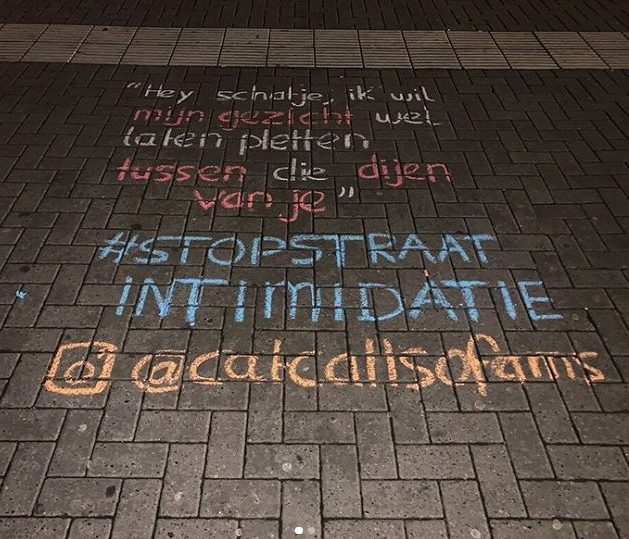 "Hey schatje, ik wil
mijn gezicht wel
laten pletten
tussen die dijen
van je"
#STOPSTRAAT
INTIMIDATIE
@catcallsofams